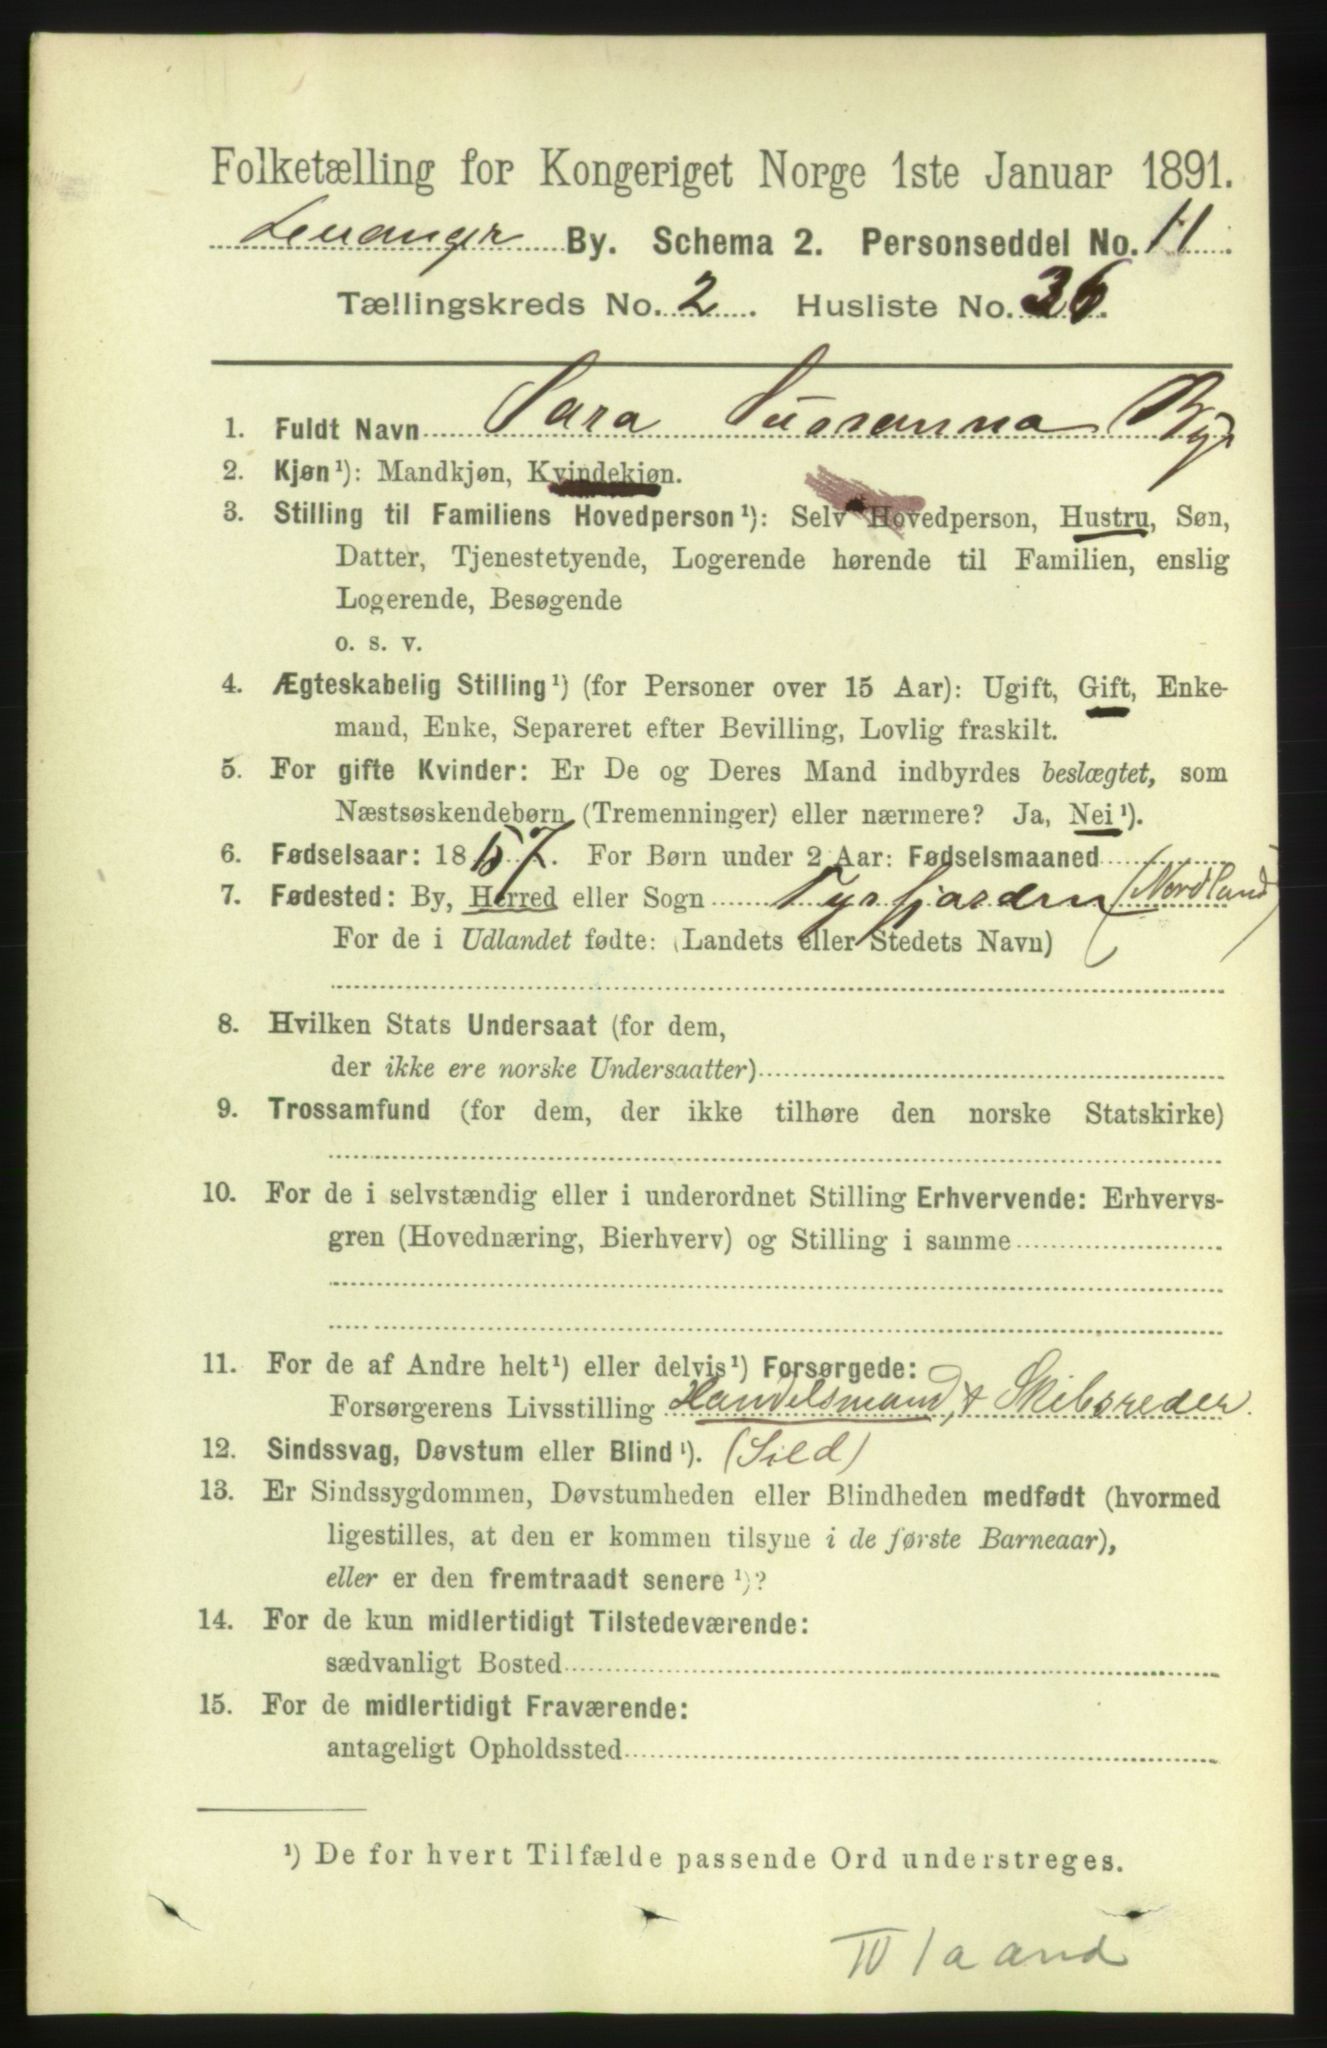 Folketælling for Kongeriget Norge 1ste Januar 1891.
Levanger By. Schema 2. Personseddel No. 11.
Tællingskreds No. 2. Husliste No. 36.
1. Fuldt Navn Sara Susanna Bye
2. Kjøn¹): Mandkjøn, Kvindekjøn.
3. Stilling til Familiens Hovedperson¹): Selv Hovedperson, Hustru, Søn,
Datter, Tjenestetyende, Logerende hørende til Familien, enslig
Logerende, Besøgende
o. s. v.
4. Ægteskabelig Stilling¹) (for Personer over 15 Aar): Ugift, Gift, Enke-
mand, Enke, Separeret efter Bevilling, Lovlig fraskilt.
5. For gifte Kvinder: Er De og Deres Mand indbyrdes beslægtet, som
Næstsøskendebørn (Tremenninger) eller nærmere? Ja, Nei¹).
6. Fødselsaar: 1857. For Børn under 2 Aar: Fødselsmaaned
7. Fødested: By, Herred eller Sogn Tysfjorden (Nordland)
For de i Udlandet fødte: (Landets eller Stedets Navn)
8. Hvilken Stats Undersaat (for dem,
der ikke ere norske Undersaatter)
9. Trossamfund (for dem, der ikke tilhøre den norske Statskirke)
10. For de i selvstændig eller i underordnet Stilling Erhvervende: Erhvervs-
gren (Hovednæring, Bierhverv) og Stilling i samme
11. For de af Andre helt¹) eller delvis¹) Forsørgede:
Forsørgerens Livsstilling Handelsmand, & Skibsreder.
12. Sindssvag, Døvstum eller Blind¹). (Sild)
13. Er Sindssygdommen, Døvstumheden eller Blindheden medfødt (hvormed
ligestilles, at den er kommen tilsyne i de første Barneaar),
eller er den fremtraadt senere¹)?
14. For de kun midlertidigt Tilstedeværende:
sædvanligt Bosted
15. For de midlertidigt Fraværende:
antageligt Opholdssted
¹) De for hvert Tilfælde passende Ord understreges.